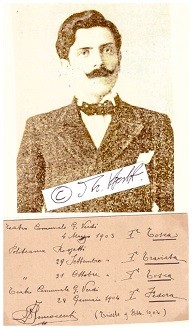 © Th. Kor
Teatro Comunale G. Verdi
4 Marzo 1903 Iª Tosca
Politeama Rossetti
29 Settembre " Iª Traviata
" 31 Ottobre " Iª Tosca
Teatro Comunale G. Verdi
28 Gennaio 1904 Iª Fedora
Innocenti (Trieste 1904)